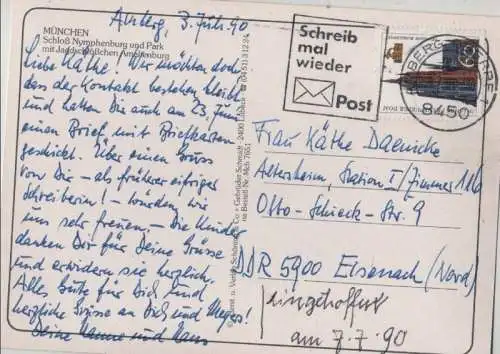 Amberg, 3. Juli 90
MÜNCHEN
Schloß Nymphenburg und Park
mit Jagdschlößchen Amalienburg
Liebe Käthe! Wir möchten doch,
dass der Kontakt bestehen bleibt
und hatten Dir auch am 23. Juni
einen Brief mit Briefkarten
geschickt. Über einen Gruss
von Dir - als früherer eifriger
Schreiberin! - würden wir
uns sehr freuen. - Die Kinder
danken Dir für Deine Grüsse
und erwidern sie herzlich.
Alles Gute für Dich und
herzliche Grüsse an Dich und Meyers!
Deine Hanne und Hans
Schreib
mal
wieder
Post
60
8450
Frau Käthe Daenicke
Altersheim Station I/Zimmer 116
Otto-Schieck-Str. 9
DDR 5900 Eisenach (Nord)
eingetroffen
am 7.7.90